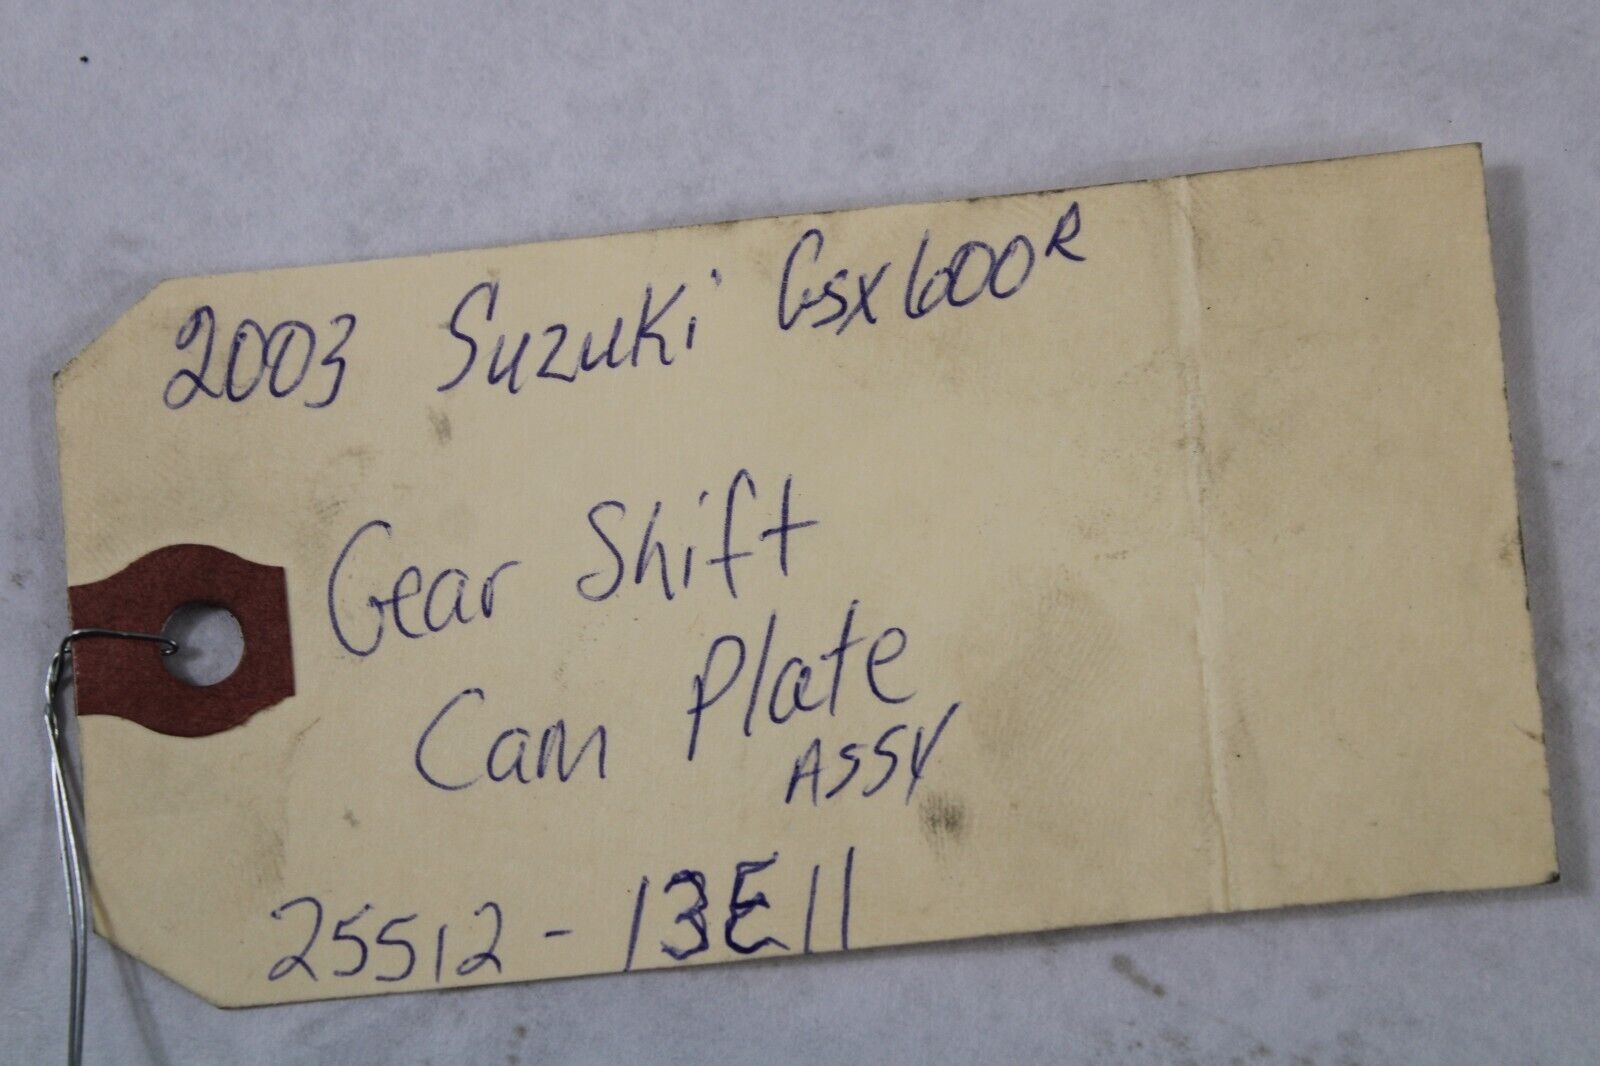 2003 Suzuki Gsx600R
Gear Shift
Cam Plate
ASSY
25512-13E11